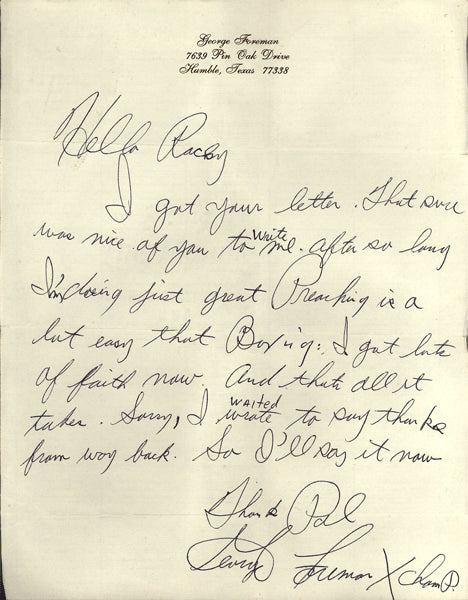 George Foreman
7639 Pin Oak Drive
Humble, Texas 77338
Hello
I got your letter. That sure
was nice of you to write me. after so long
I'm doing just great Preaching is a
lot easy that Boxing: I got lots
of faith now. And thats all it
takes. Sorry, I waited to say thanks
from way back. So I'll say it now
Thank Pal
George Foreman X champ.